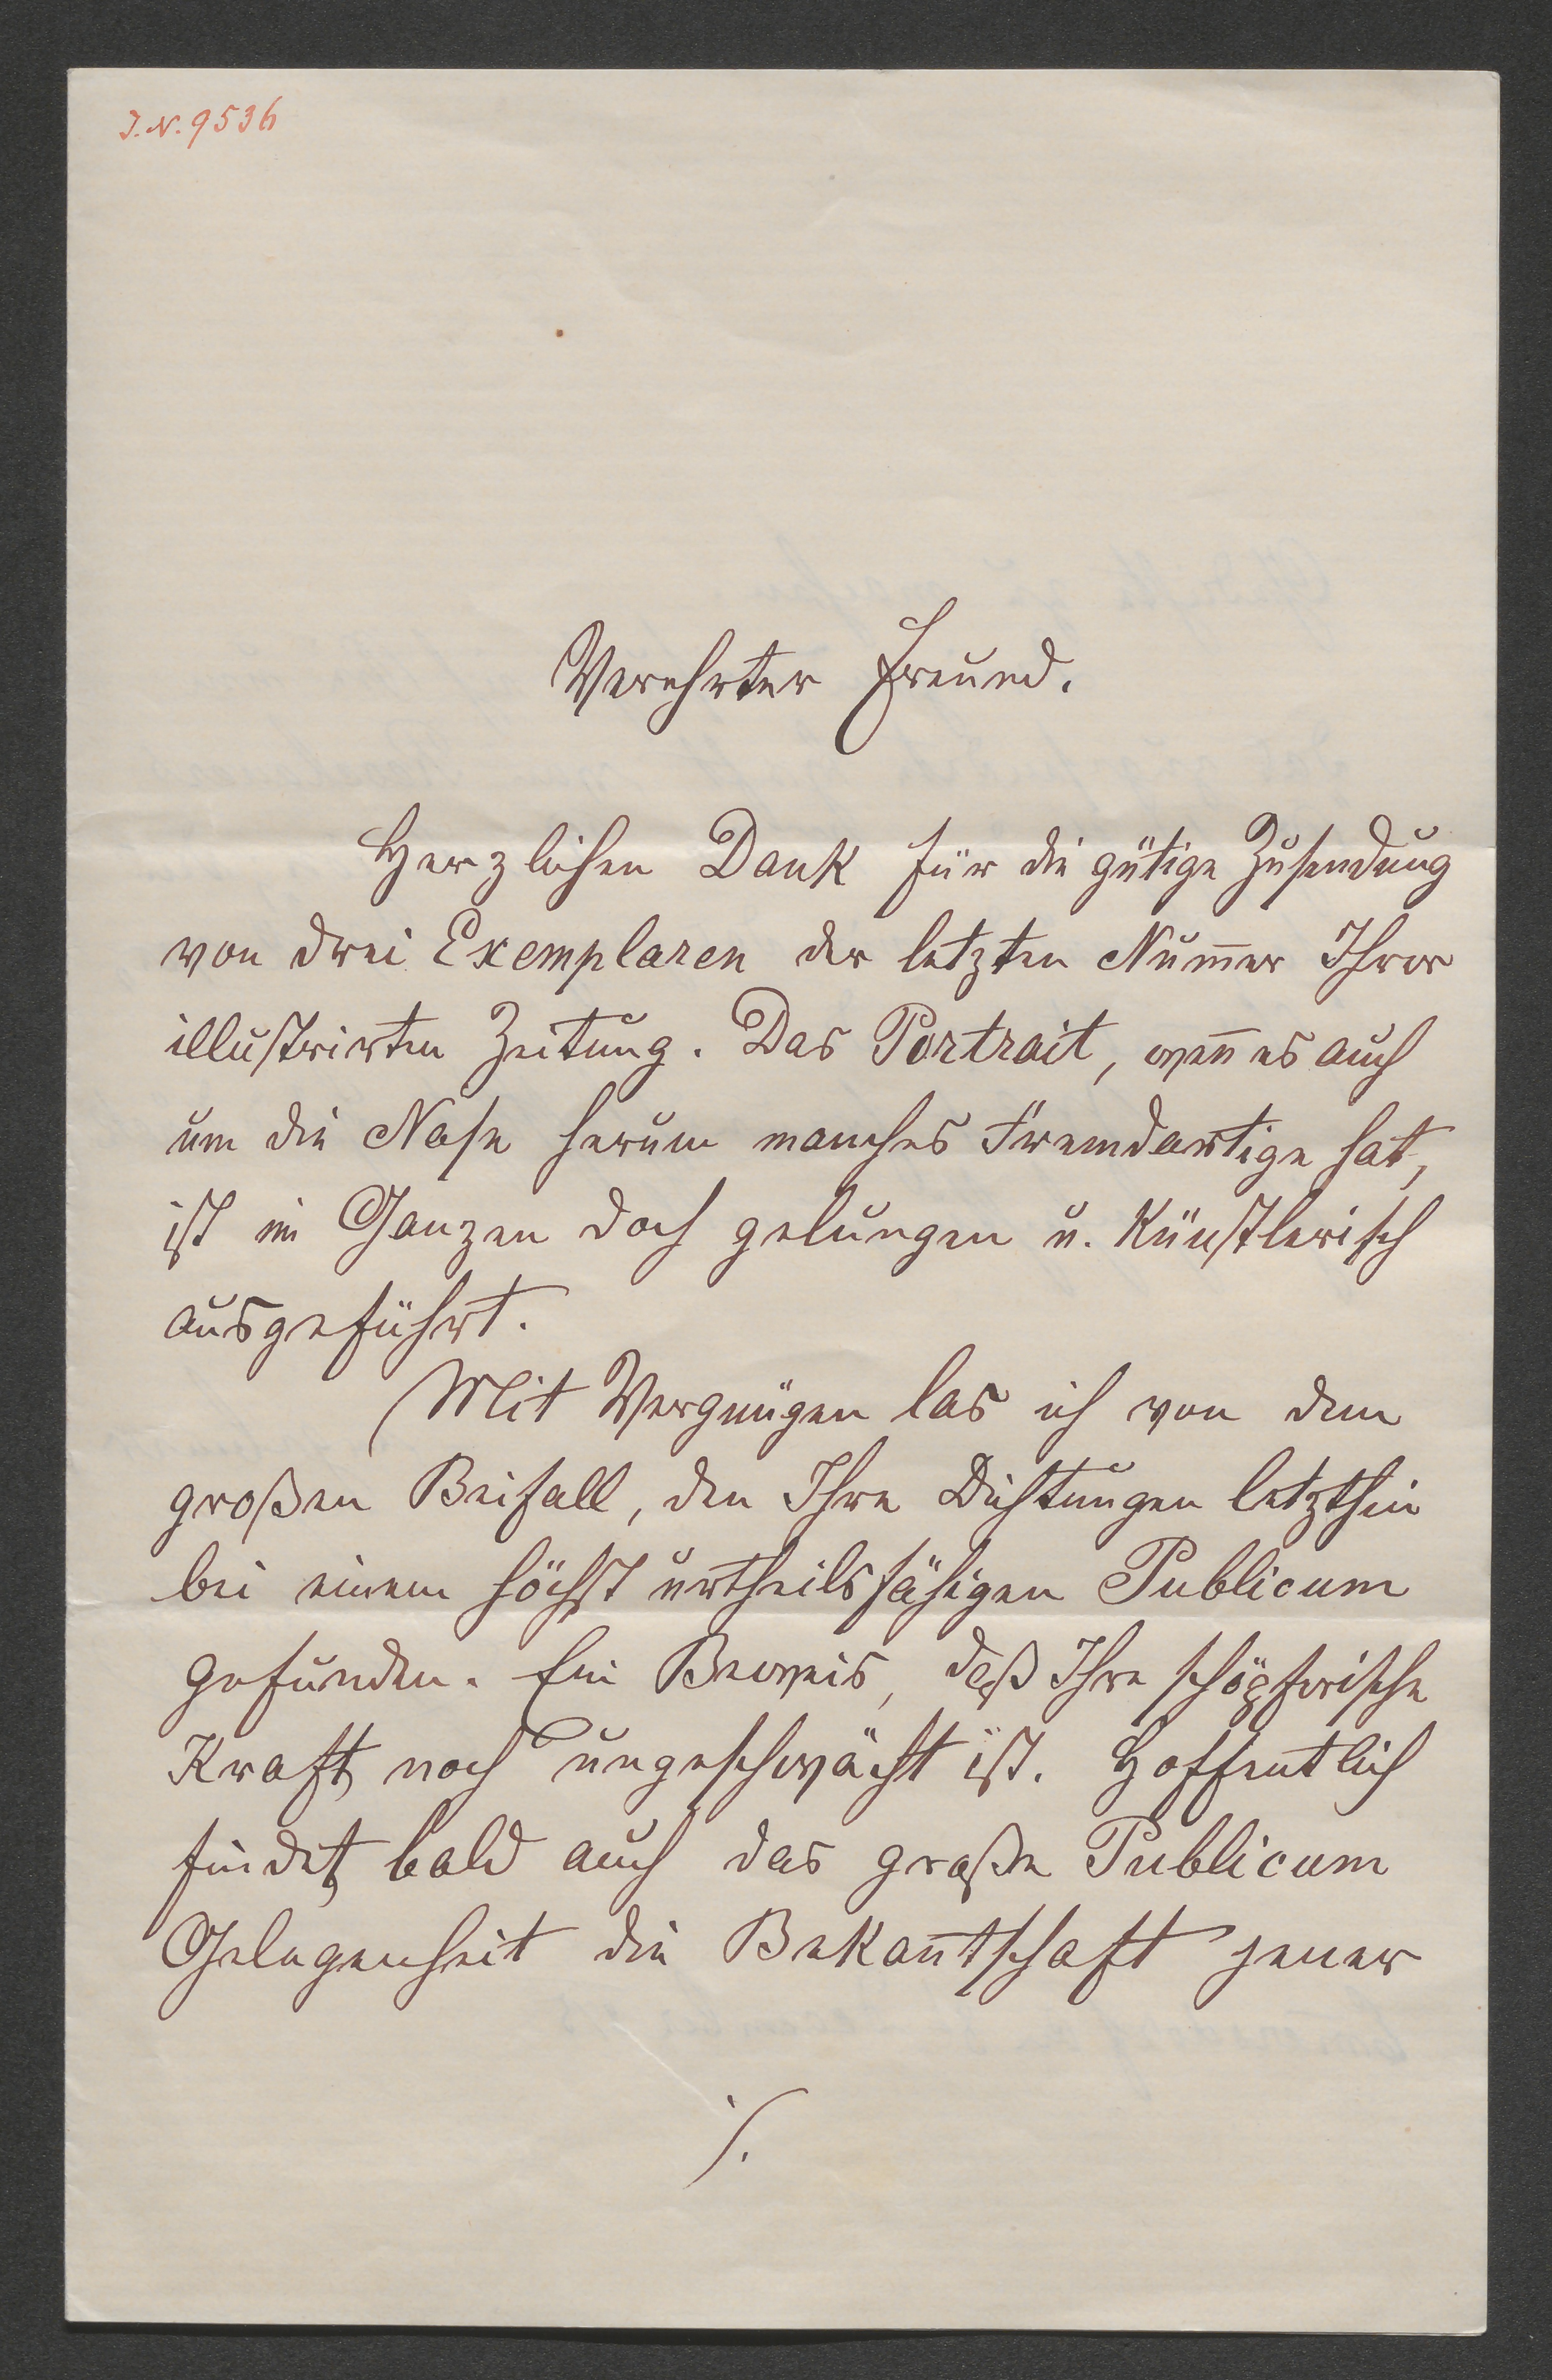 J.N. 9536
Verehrter Freund.
Herzlichen Dank für die gütige Zusendung
von drei Exemplaren der letzten Num̅er Ihrer
illustrirten Zeitung. Das Portrait, wen̅ es auch
um die Nase herum manches Fremdartige hat,
ist im Ganzen doch gelungen u. künstlerisch
ausgeführt.
Mit Vergnügen las ich von dem
großen Beifall, den Ihre Dichtungen letzthin
bei einem höchst urtheilsfähigen Publicum
gefunden. Ein Beweis, daß Ihre schöpferische
Kraft noch ungeschwächt ist. Hoffentlich
findet bald auch das große Publicum
Gelegenheit die Bekan̅tschaft jener
./.